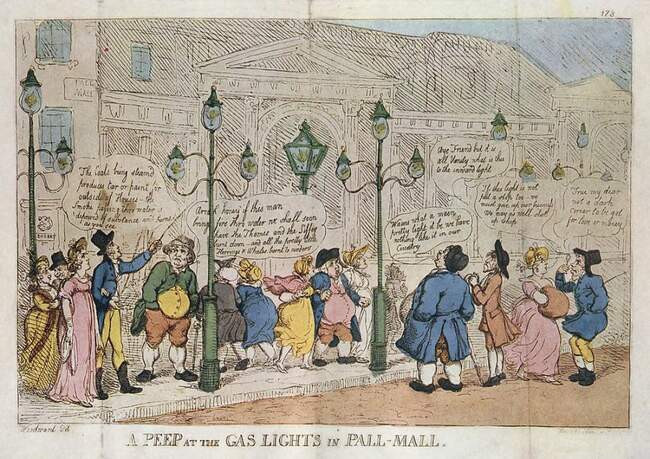 173
PALL
MALL
The Coals being steam'd
produces tar or paint for
outside of Houses - the
Smoke passing thro water is
deprived of substance and burns
as you see
Arrah honey if this man
bring fire thro water we shall soon
have the Thames and the Liffey
burnt down - and all the pretty little
Herrings & Whales burnt to cinders
Wauns what a main
pretty light it be we have
nothing like it in our
Country
Aye Friend but it is
all Vanity what is this
to the inward light
If this light is not
put a stop to - we
must give up our business
we may as well shut
up shop
True my dear
not a dark
corner to be got
for love or money
Woodward Del
A PEEP AT THE GAS LIGHTS IN PALL-MALL.